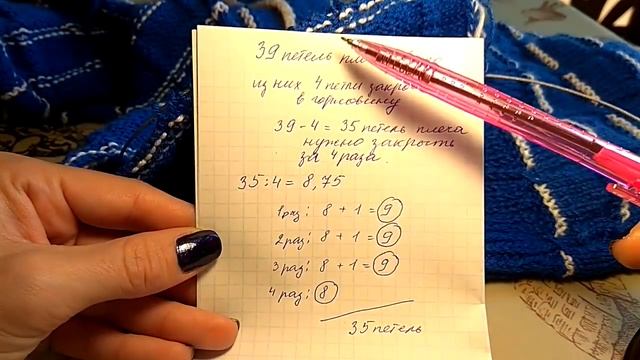 39 петель
из них 4 петли
в горловину
39 - 4 = 35 петель плеча
нужно закрыть
за 4 раза.
35 : 4 = 8,75
1 раз: 8 + 1 = 9
2 раз: 8 + 1 = 9
3 раз: 8 + 1 = 9
4 раз: 8
35 петель